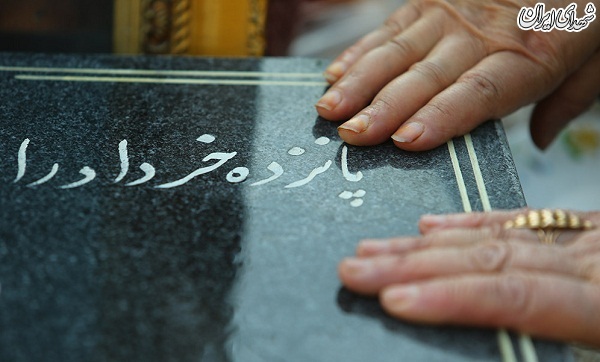 شهدای ایران
پانزده خرداد را